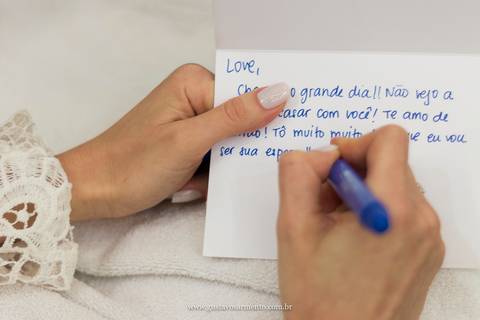 Love,
grande dia!! Não vejo a
casar com você! Te amo de
Tô muito muito eu vou
ser sua
www.gustavosarmento.com.br